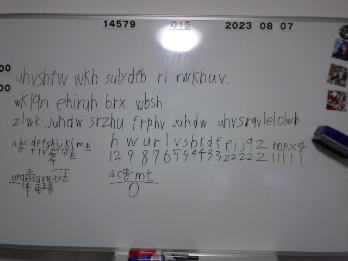 14579 015 2023 08 07
uhvshfw wkh sulydfb ri rwkhuv.
wklqn ehiruh brx wbsh
zlwk juhdw srzhu frphv juhdw uhvsrqvlelolwb.
abcdefghijklmn
h w u r l v s b k d f e i j q z
12 9 8 7 6 5 5 4 4 3 3 2 2 2 2 2 1 1 1 1 1
acgmt
0